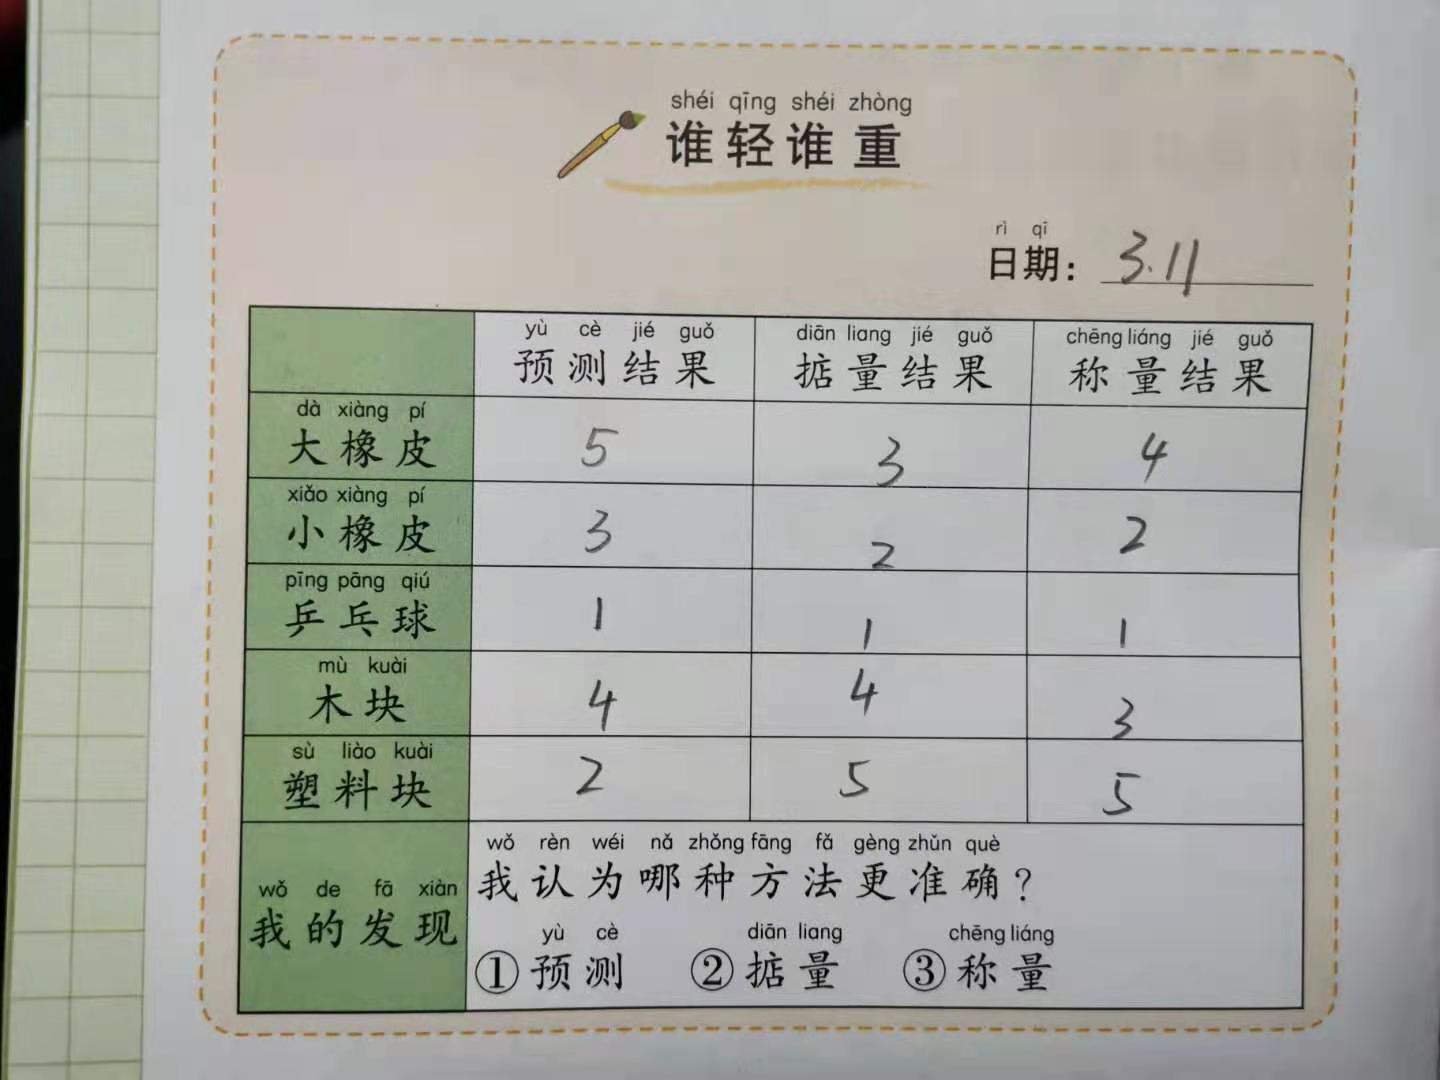 shéi qīng shéi zhòng
谁轻谁重
rì qī
日期: 3.11
yù cè jié guǒ diān liang jié guǒ chēng liáng jié guǒ
预测结果 掂量结果 称量结果
dà xiàng pí
大橡皮 5 3 4
xiǎo xiàng pí
小橡皮 3 2 2
pīng pāng qiú
乒乓球 1 1 1
mù kuài
木块 4 4 3
sù liào kuài
塑料块 2 5 5
wǒ de fā xiàn
我的发现
wǒ rèn wéi nǎ zhǒng fāng fǎ gèng zhǔn què
我认为哪种方法更准确?
yù cè diān liang chēng liáng
①预测 ②掂量 ③称量